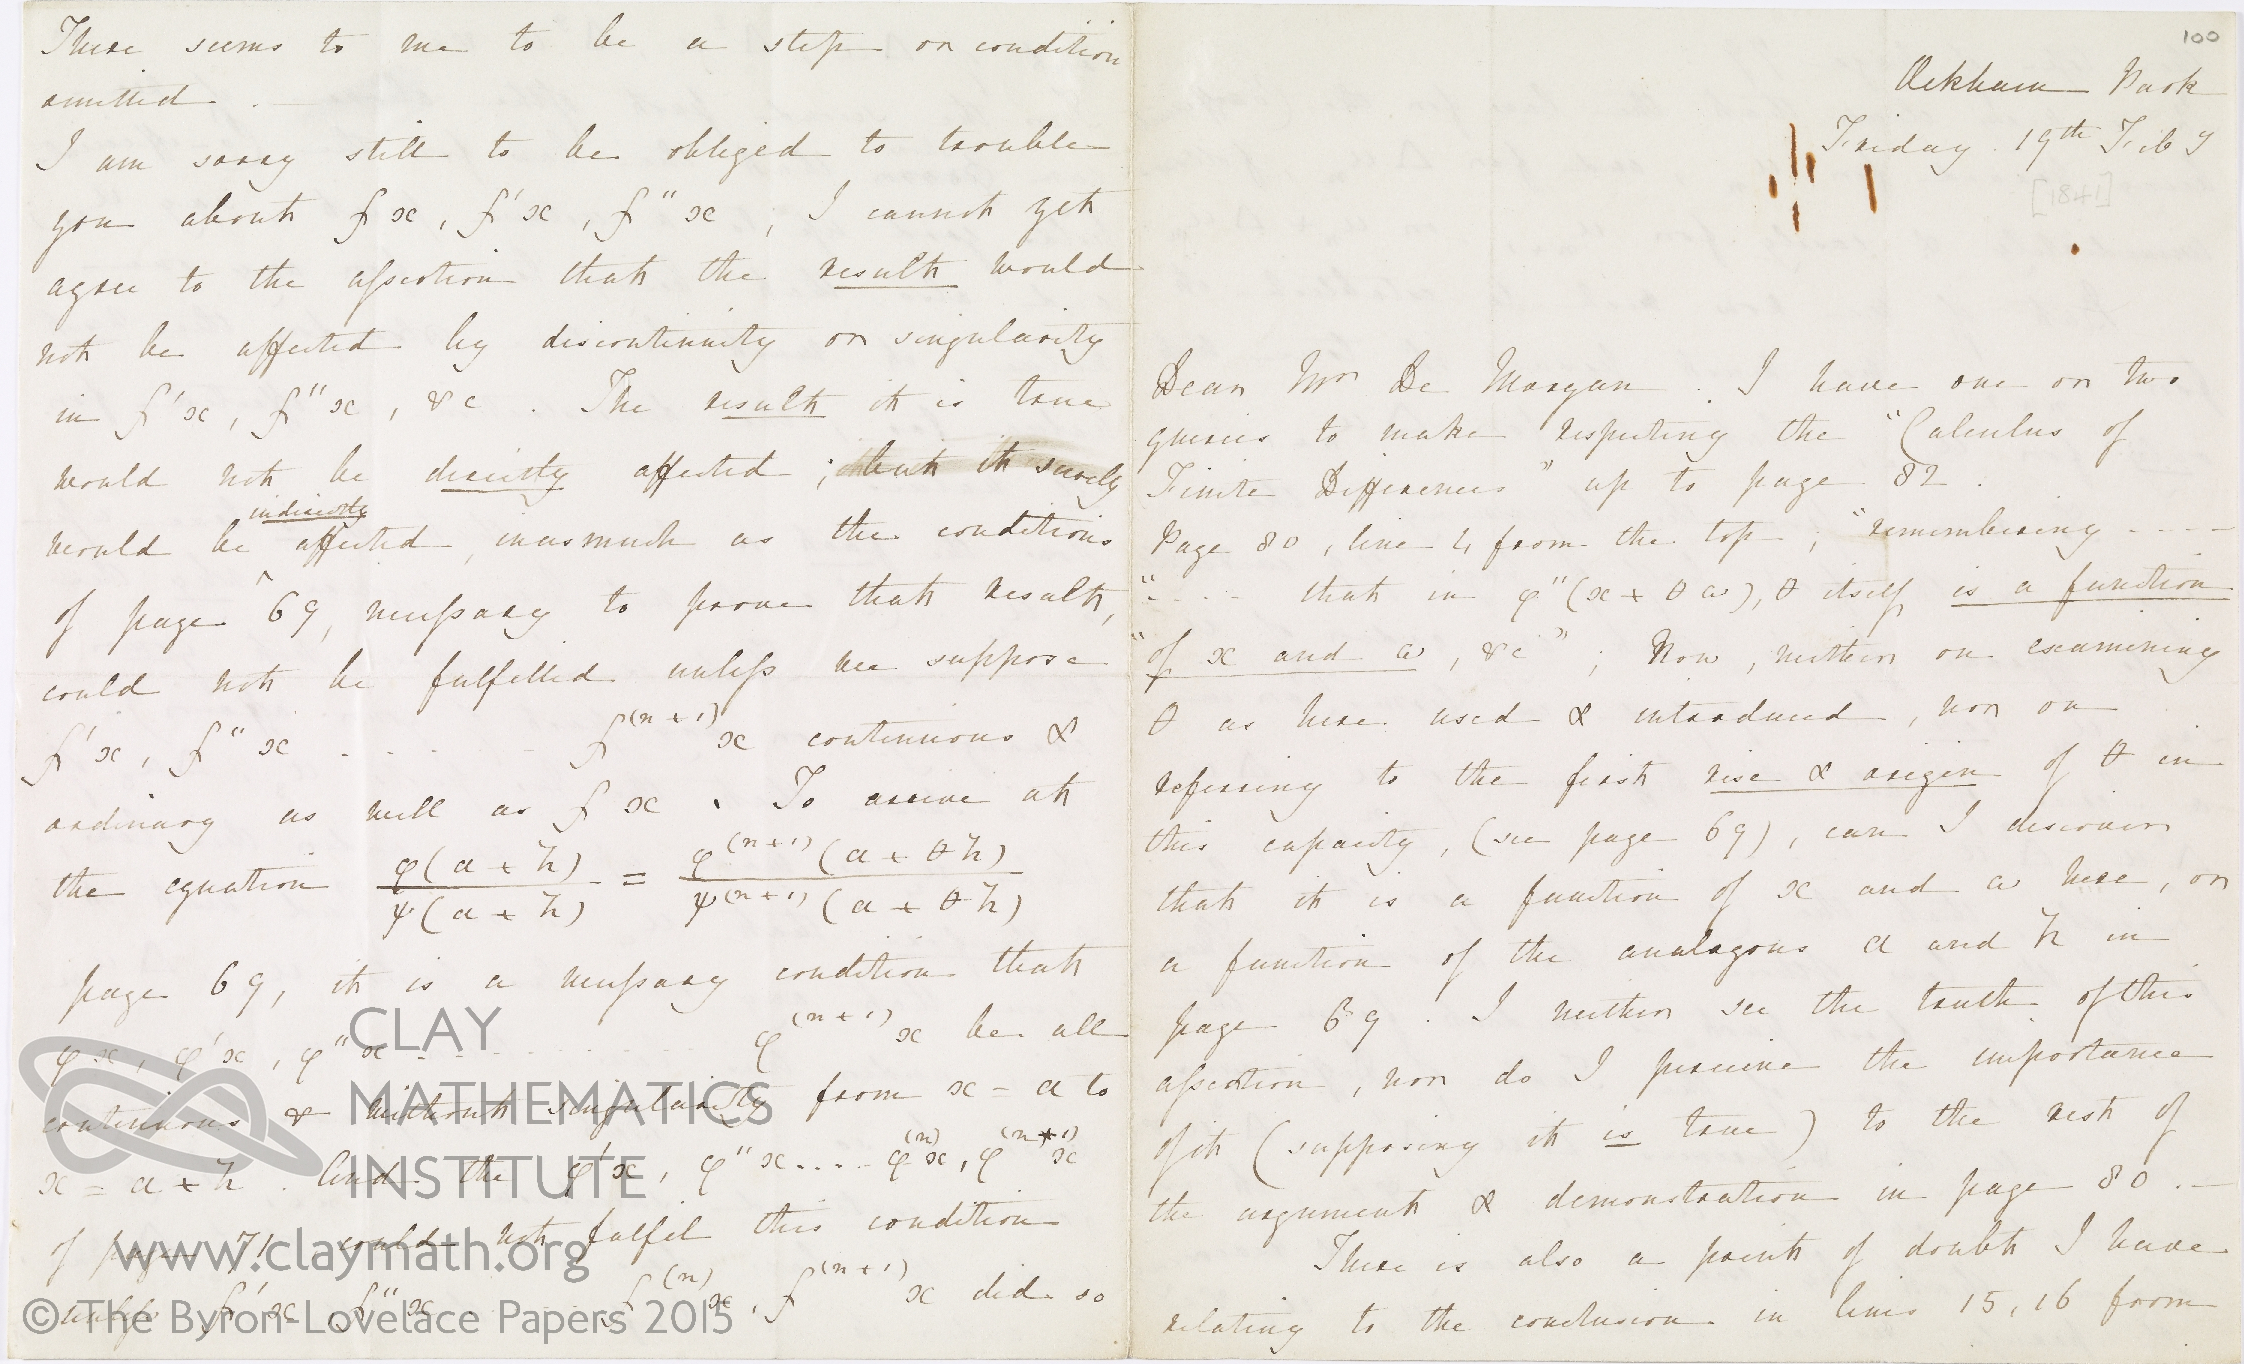 There seems to me to be a step or condition
omitted. —
I am sorry still to be obliged to trouble
you about fx, f'x, f''x; I cannot yet
agree to the assertion that the result would
not be affected by discontinuity or singularity
in f'x, f''x, &c. The result it is true
would not be directly affected; but it surely
would be indirectly affected, inasmuch as the conditions
of page 69, necessary to prove that result,
could not be fulfilled unless we suppose
f'x, f''x - - - - f⁽ⁿ⁺¹⁾x continuous &
ordinary as well as fx. To arrive at
the equation φ(a + h)/ψ(a + h) = φ⁽ⁿ⁺¹⁾(a + θh)/ψ⁽ⁿ⁺¹⁾(a + θh)
page 69, it is a necessary condition that
φx, φ'x, φ''x - - - - - φ⁽ⁿ⁺¹⁾x be all
continuous & without singularity from x = a to
x = a + h. And the φ'x, φ''x..... φ⁽ⁿ⁾x, φ⁽ⁿ⁺¹⁾x
of page 71 could not fulfil this condition
unless f'x, f''x - - - - f⁽ⁿ⁾x, f⁽ⁿ⁺¹⁾x did so
100
Ockham Park
Friday. 19th Feby
[1841]
Dear Mr De Morgan. I have one or two
queries to make respecting the "Calculus of
Finite Differences" up to page 82.
Page 80, line 4 from the top; "remembering - - - -
"- - - - that in φ''(x + θω), θ itself is a function
"of x and ω, &c"; Now, neither on examining
θ as here used & introduced, nor on
referring to the first rise & origin of θ in
this capacity, (see page 69), can I discover
that it is a function of x and ω here, or
a function of the analogous a and h in
page 69. I neither see the truth of this
assertion, nor do I perceive the importance
of it (supposing it is true) to the rest of
the argument & demonstration in page 80. —
There is also a point of doubt I have
relating to the conclusion in lines 15, 16 from
CLAY
MATHEMATICS
INSTITUTE
www.claymath.org
© The Byron-Lovelace Papers 2015